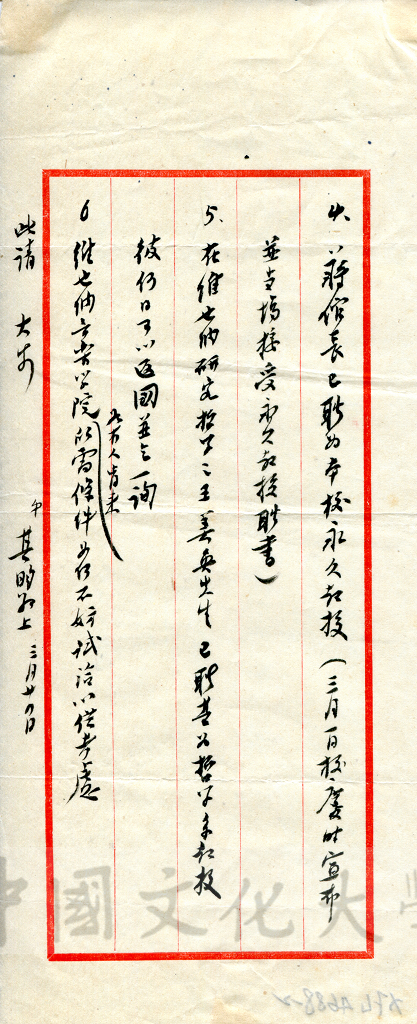 4、蔣館長已聘為本校永久教授（三月一日校慶時宣布
並當場接受永久教授聘書）
5、在維也納研究哲學之王善先生已聘其為哲學系教授
彼何日可以返國並乞一詢
6 維也納音樂學院 所需條件如何不妨試洽以供考慮
如有人肯來
此請 大安
弟 其昀 上 三月廿四日
中國文化大學